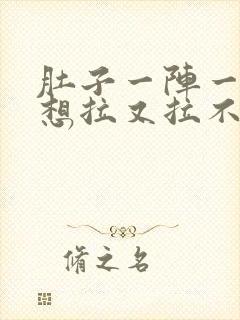 肚子一陣一
想拉又拉不
脩之名